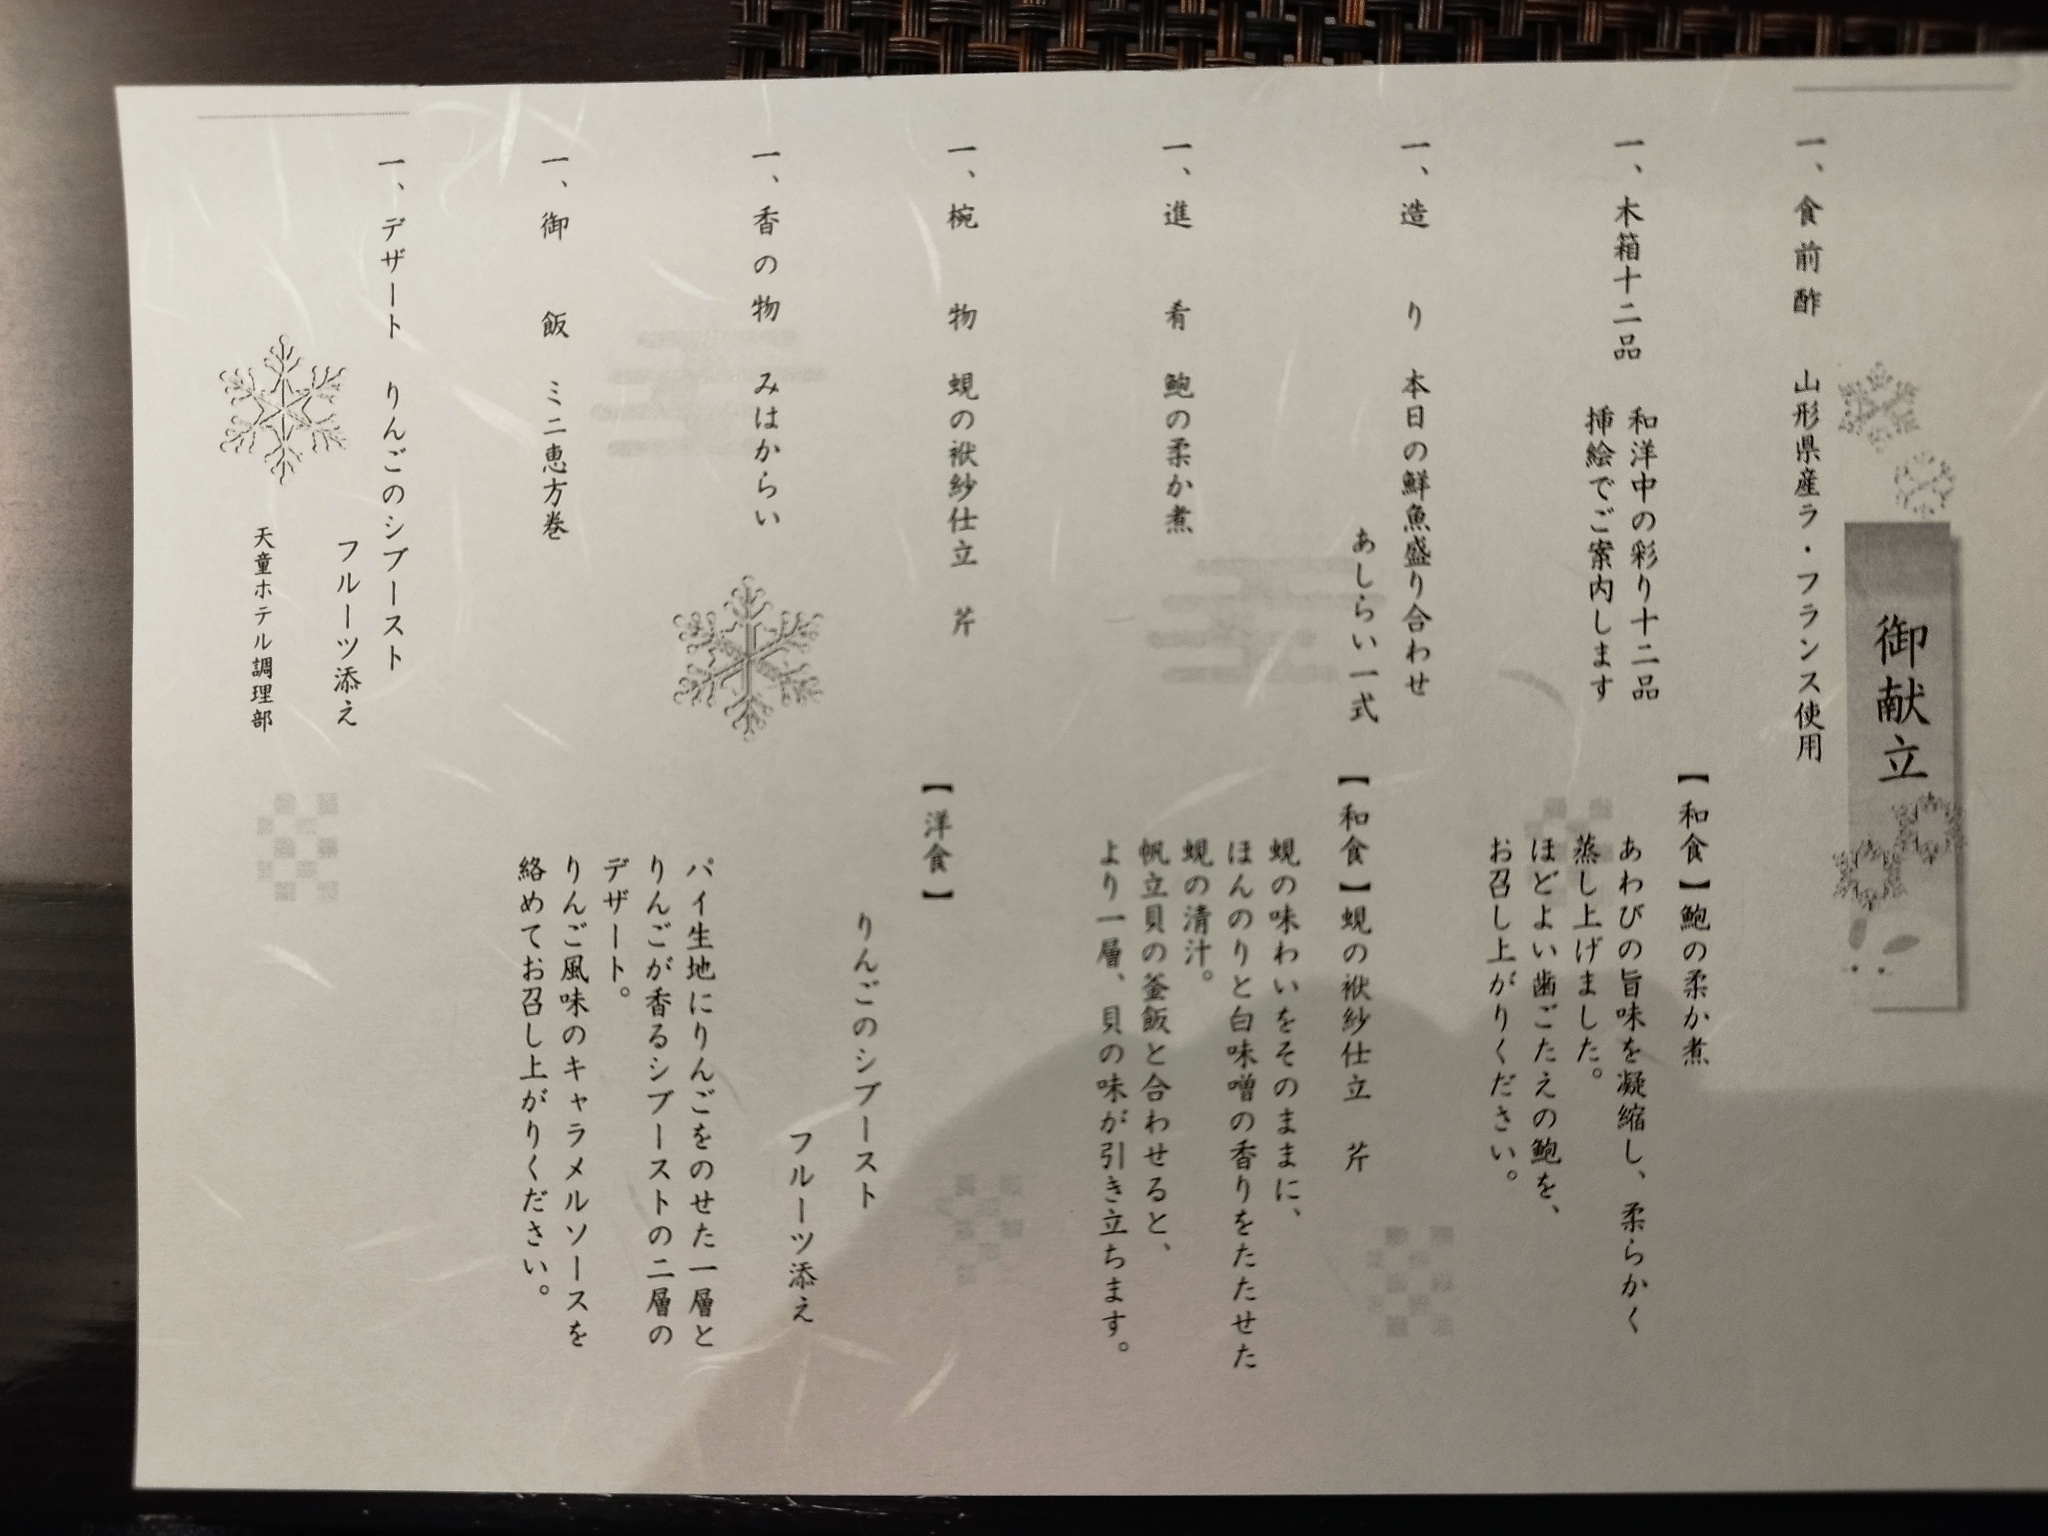 御献立
一、食前酢 山形県産ラ・フランス使用
一、木箱十二品 和洋中の彩り十二品
挿絵でご案内します
一、造り 本日の鮮魚盛り合わせ
あしらい一式
一、進肴 鮑の柔か煮
一、椀物 蜆の袱紗仕立 芹
一、香の物 みはからい
一、御飯 ミニ恵方巻
一、デザート りんごのシブースト
フルーツ添え
天童ホテル調理部
【和食】鮑の柔か煮
あわびの旨味を凝縮し、柔らかく
蒸し上げました。
ほどよい歯ごたえの鮑を、
お召し上がりください。
【和食】蜆の袱紗仕立 芹
蜆の味わいをそのままに、
ほんのりと白味噌の香りをたたせた
蜆の清汁。
帆立貝の釜飯と合わせると、
より一層、貝の味が引き立ちます。
【洋食】
りんごのシブースト
フルーツ添え
パイ生地にりんごをのせた一層と
りんごが香るシブーストの二層の
デザート。
りんご風味のキャラメルソースを
絡めてお召し上がりください。